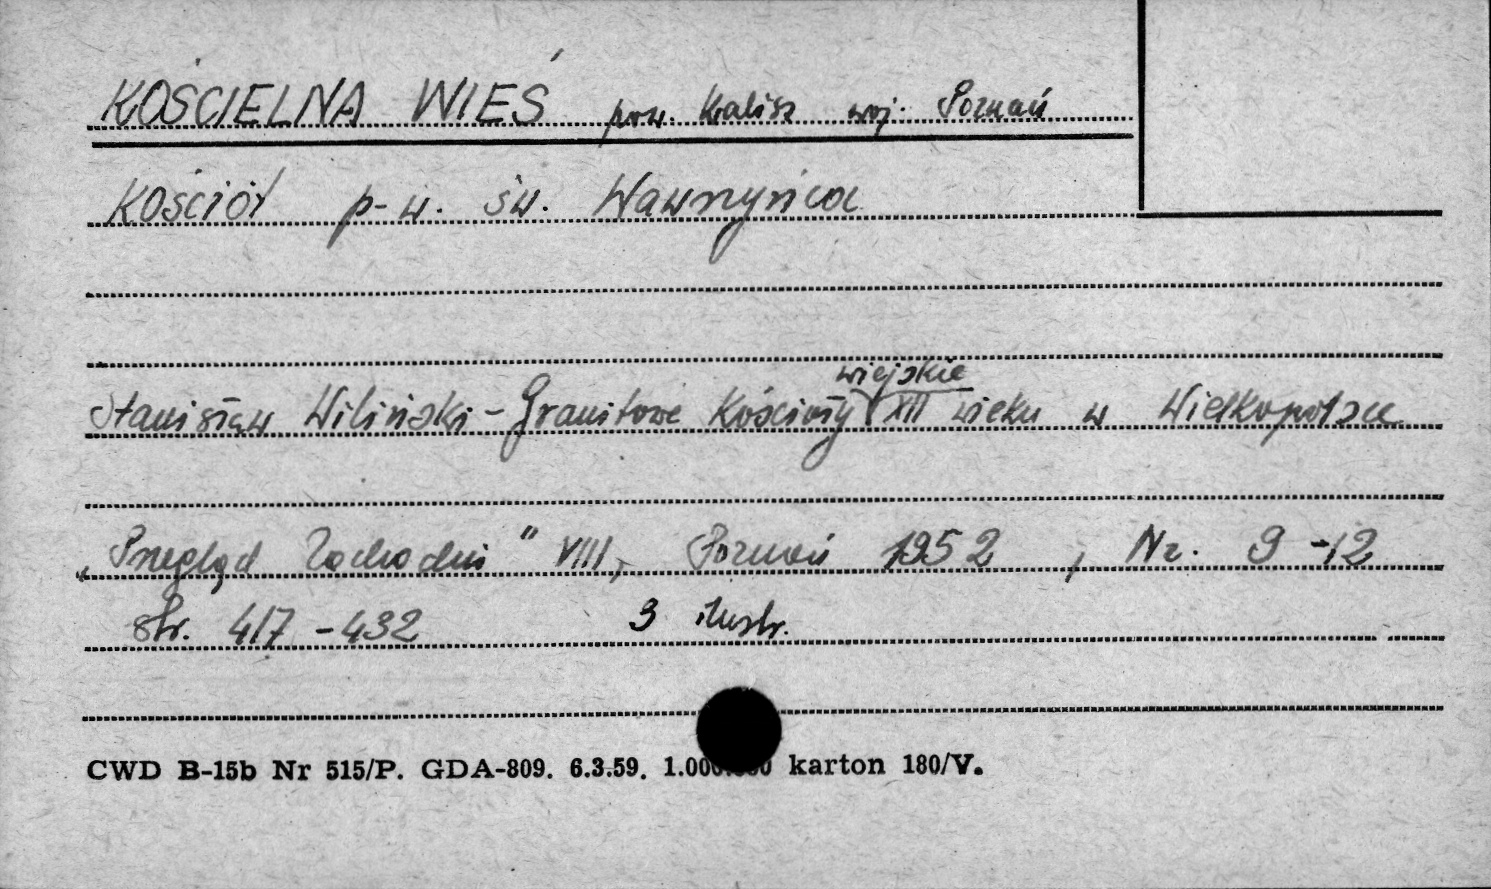 KOŚCIELNA WIEŚ pow. Kalisz woj. Poznań
Kościół p-w. św. Wawrzyńca
wiejskie
Stanisław Wiliński - Granitowe Kościoły XII wieku w Wielkopolsce
„Przegląd Zachodni" VIII, Poznań 1952, Nr. 9-12
str. 417-432 3 ilustr.
CWD B-15b Nr 515/P. GDA-809. 6.3.59. karton 180/V.